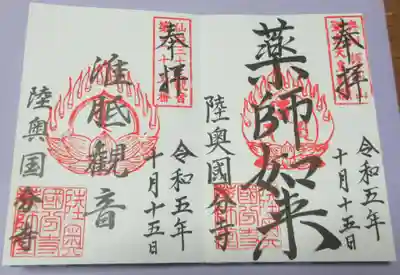 奉拝
令和五年
十月十五日
薬師如来
陸奥國分寺
奉拝
令和五年
十月十五日
准胝觀音
陸奥国分寺